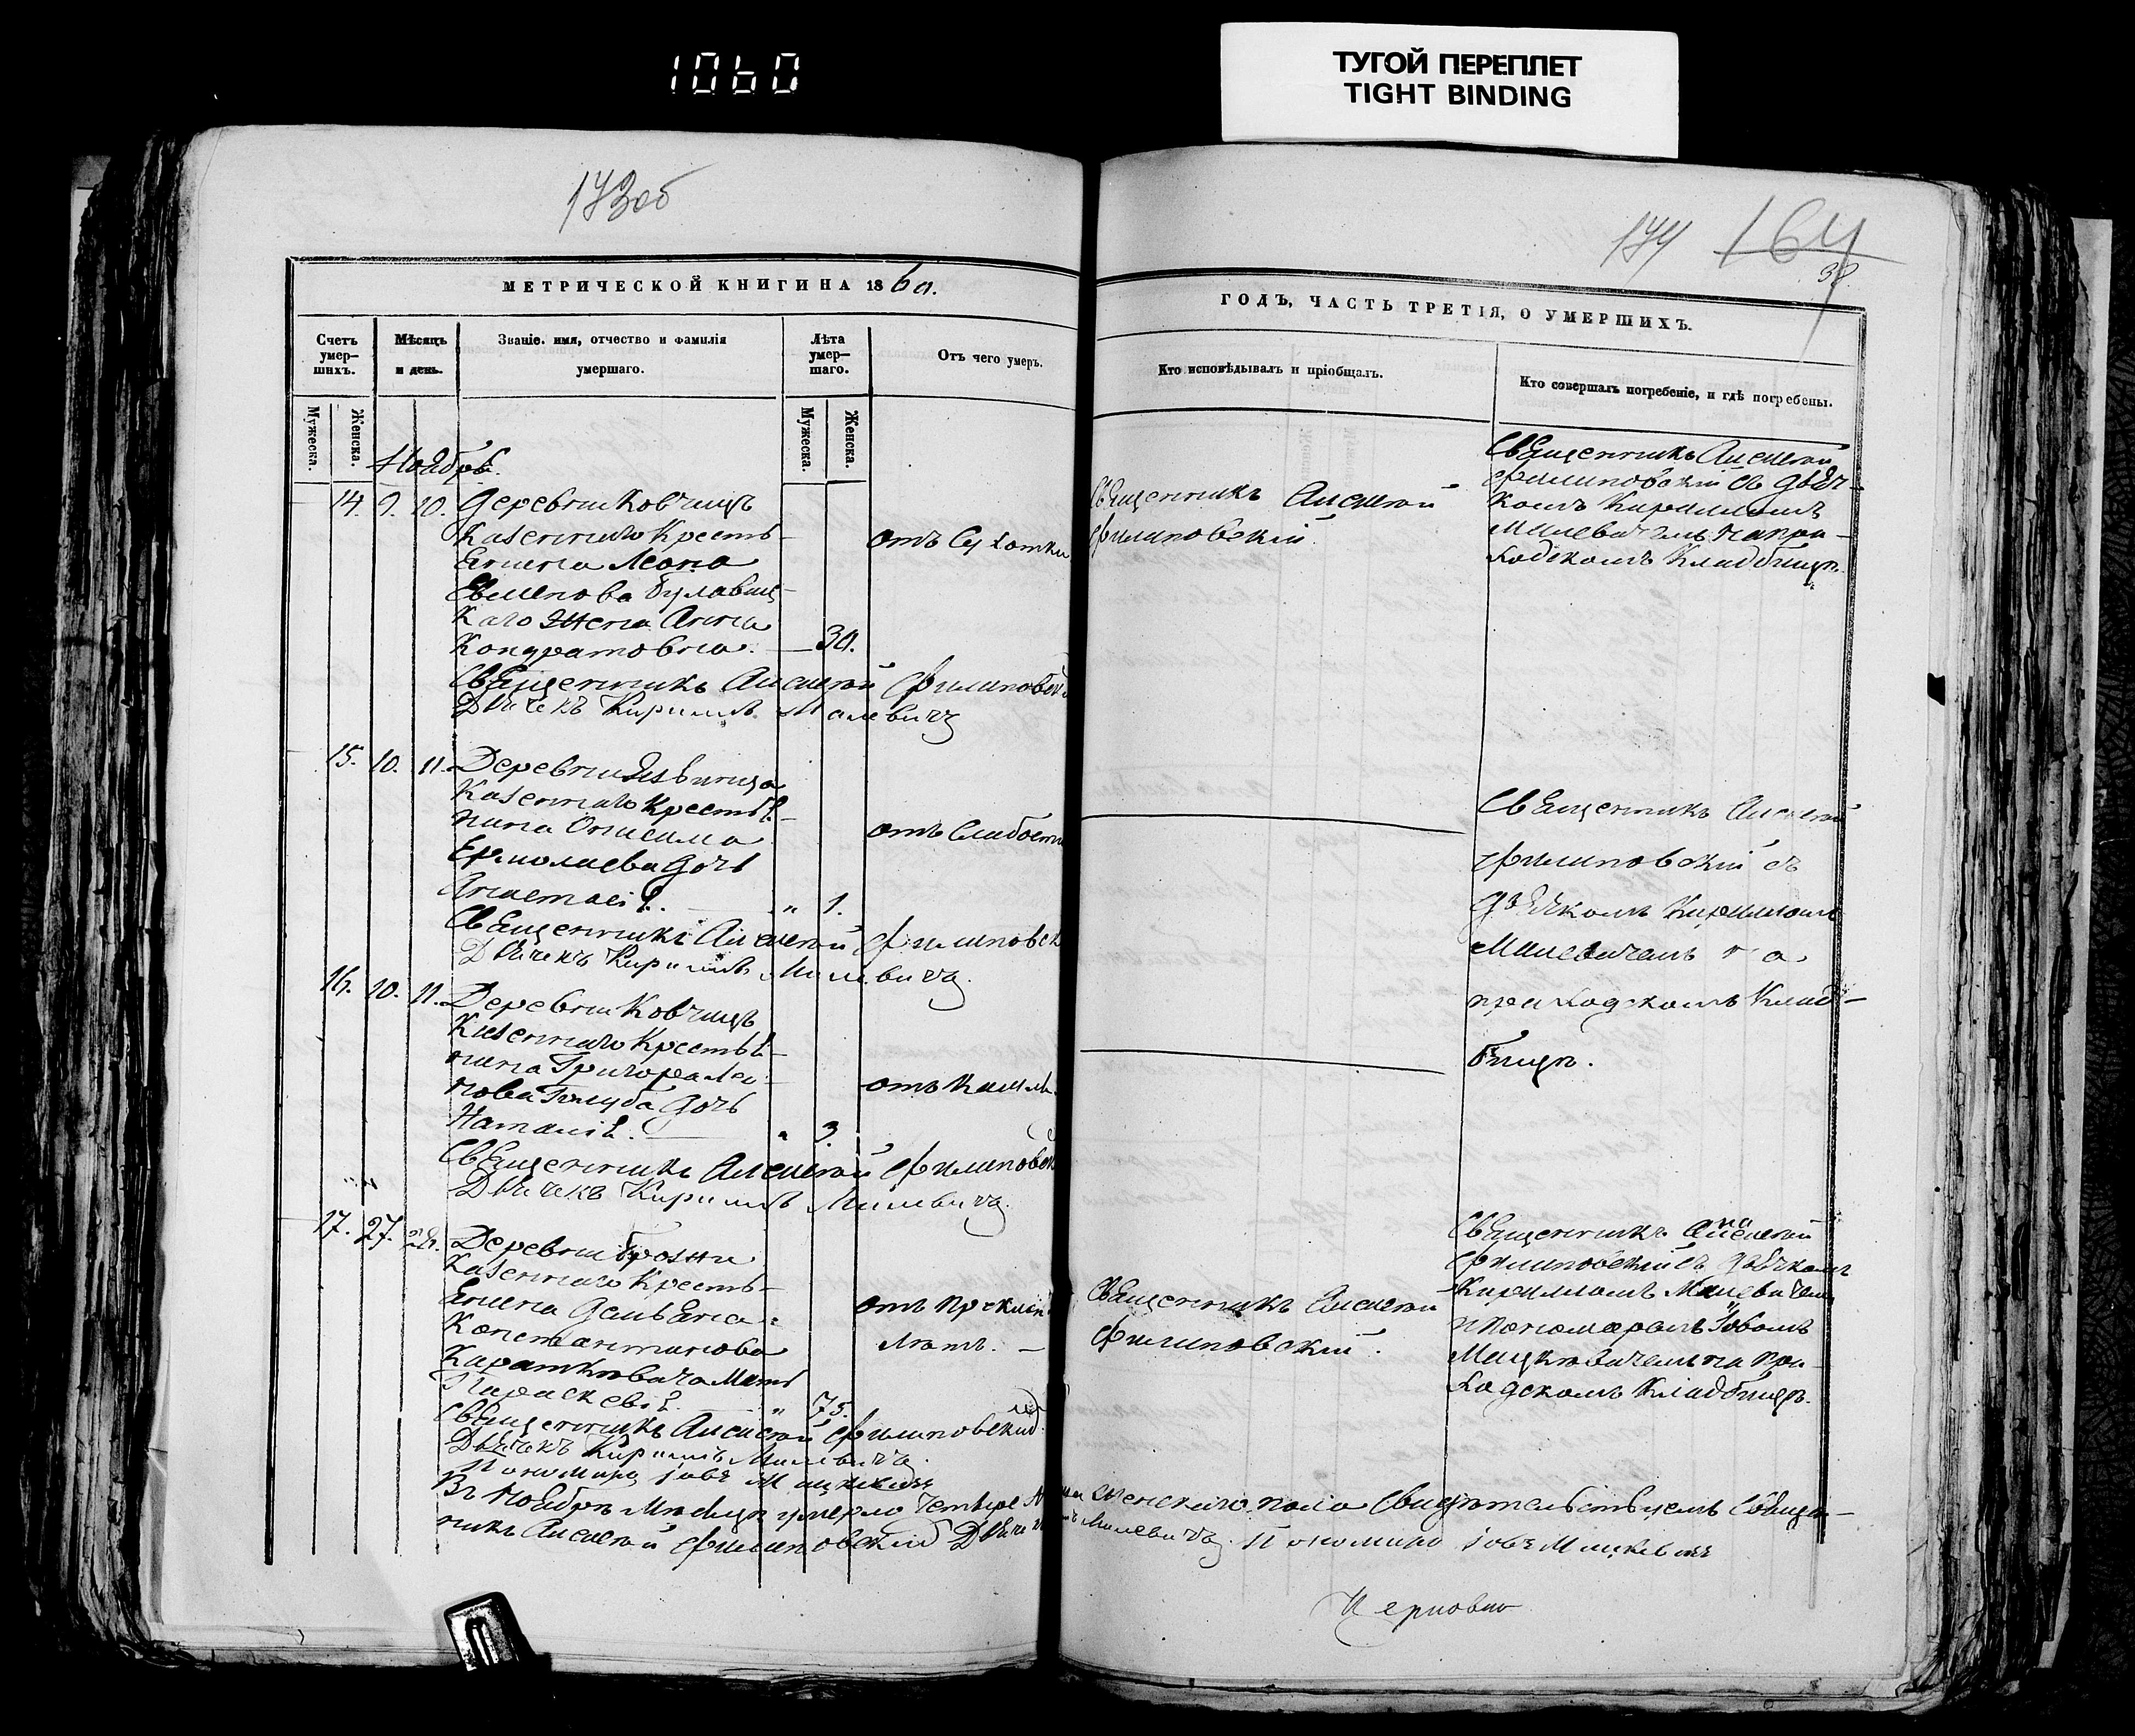 1060
ТУГОЙ ПЕРЕПЛЕТ
TIGHT BINDING
173об
174 164
МЕТРИЧЕСКОЙ КНИГИ НА 1860.
ГОДЪ, ЧАСТЬ ТРЕТІЯ, О УМЕРШИХЪ.
Счетъ умер–шихъ.
Мѣсяцъ и день.
Званіе. имя, отчество и фамилія умершаго.
Лѣта умер–шаго.
Отъ чего умеръ.
Кто исповѣдывалъ и пріобщалъ.
Кто совершалъ погребеніе, и гдѣ погребены.
Мужеска.
Женска.
Мужеска.
Женска.
Ноябрь.
14. 9. 10. Деревни Ковчицъ
Казеннаго Кресть–
янина Леона
Евменова Булавиц–
каго Жена Анна
Кондратовна. — 30.
отъ Сухотки
Священникъ Алексѣй
Филиповскій.
Священникъ Алексѣй
Филиповскій съ дьяч–
комъ Кирилломъ
Милевичемъ на при–
ходскомъ Кладбищѣ.
Священникъ Алексѣй Филиповск
Дьячекъ Кириллъ Милевичъ
15. 10. 11. Деревни Язвинца
Казеннаго Крестья–
нина Онисима
Ермолаева дочь
Анастасія. „ 1.
отъ Слабости
Священникъ Алексѣй
Филиповскій съ
дьячкомъ Кирилломъ
Милевичемъ на
приходскомъ Клад–
бищѣ.
Священникъ Алексѣй Филиповск
Дьячекъ Кириллъ Милевичъ.
16. 10. 11. Деревни Ковчицъ
Казеннаго Крестья–
нина Григорія Лео–
нова Голуба дочь
Наталія. „ 3.
отъ Кашля.
Священникъ Алексѣй Филиповск
Дьячекъ Кириллъ Милевичъ.
17. 27. 28. Деревни Брожи
Казеннаго Кресть–
янина Демьяна
Константинова
Мать
Параскевія. „ 75.
отъ Преклон
лѣтъ. –
Священникъ Алексѣй
Филиповскій.
Священникъ Алексѣй
Филиповскій съ дьячкомъ
Кирилломъ Милевичемъ
и пономаремъ Іовомъ
Мицкевичемъ на при–
ходскомъ Кладбищѣ.
Священникъ Алексѣй Филиповскій
Дьячекъ Кириллъ Милевичъ.
Пономарь Іовъ Мицкевичъ
Въ Ноябрѣ Мѣсяцѣ умерло Четыре женскаго пола Свидѣтельствуемъ Священ–
никъ Алексѣй Филиповскій Дьячекъ Милевичъ. Пономарь Іовъ Мицкевичъ